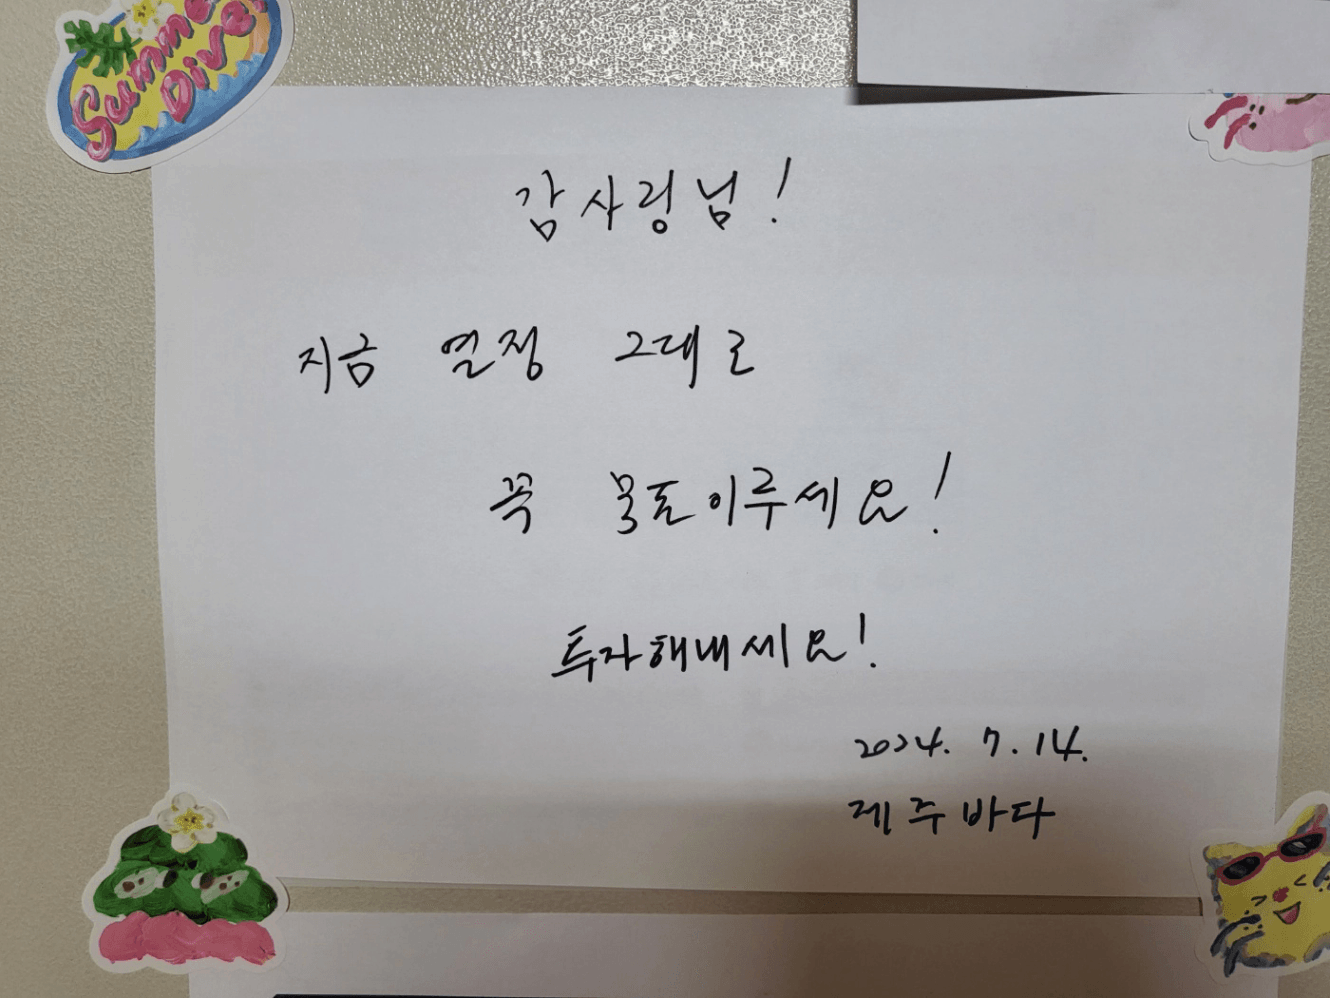 Summer
Dive
감사링님!
지금 열정 그대로
꼭 목표이루세요!
투자해내세요!
2024. 7. 14.
제주바다